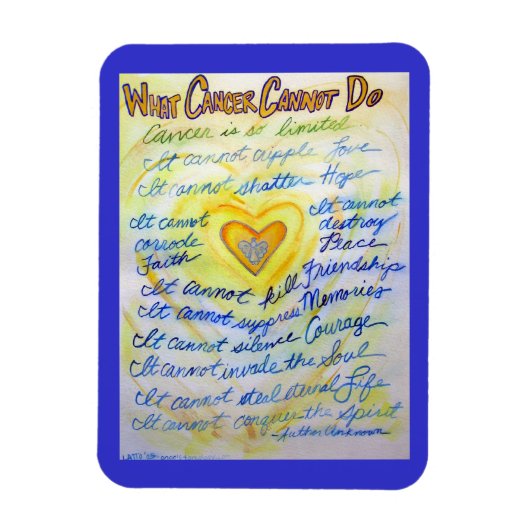 What Cancer Cannot Do
Cancer is so limited...
It cannot cripple Love
It cannot shatter Hope
It cannot
corrode
Faith
It cannot
destroy
Peace
It cannot kill Friendship
It cannot suppress Memories
It cannot silence Courage
It cannot invade the Soul
It cannot steal eternal Life
It cannot conquer the Spirit
-Author Unknown